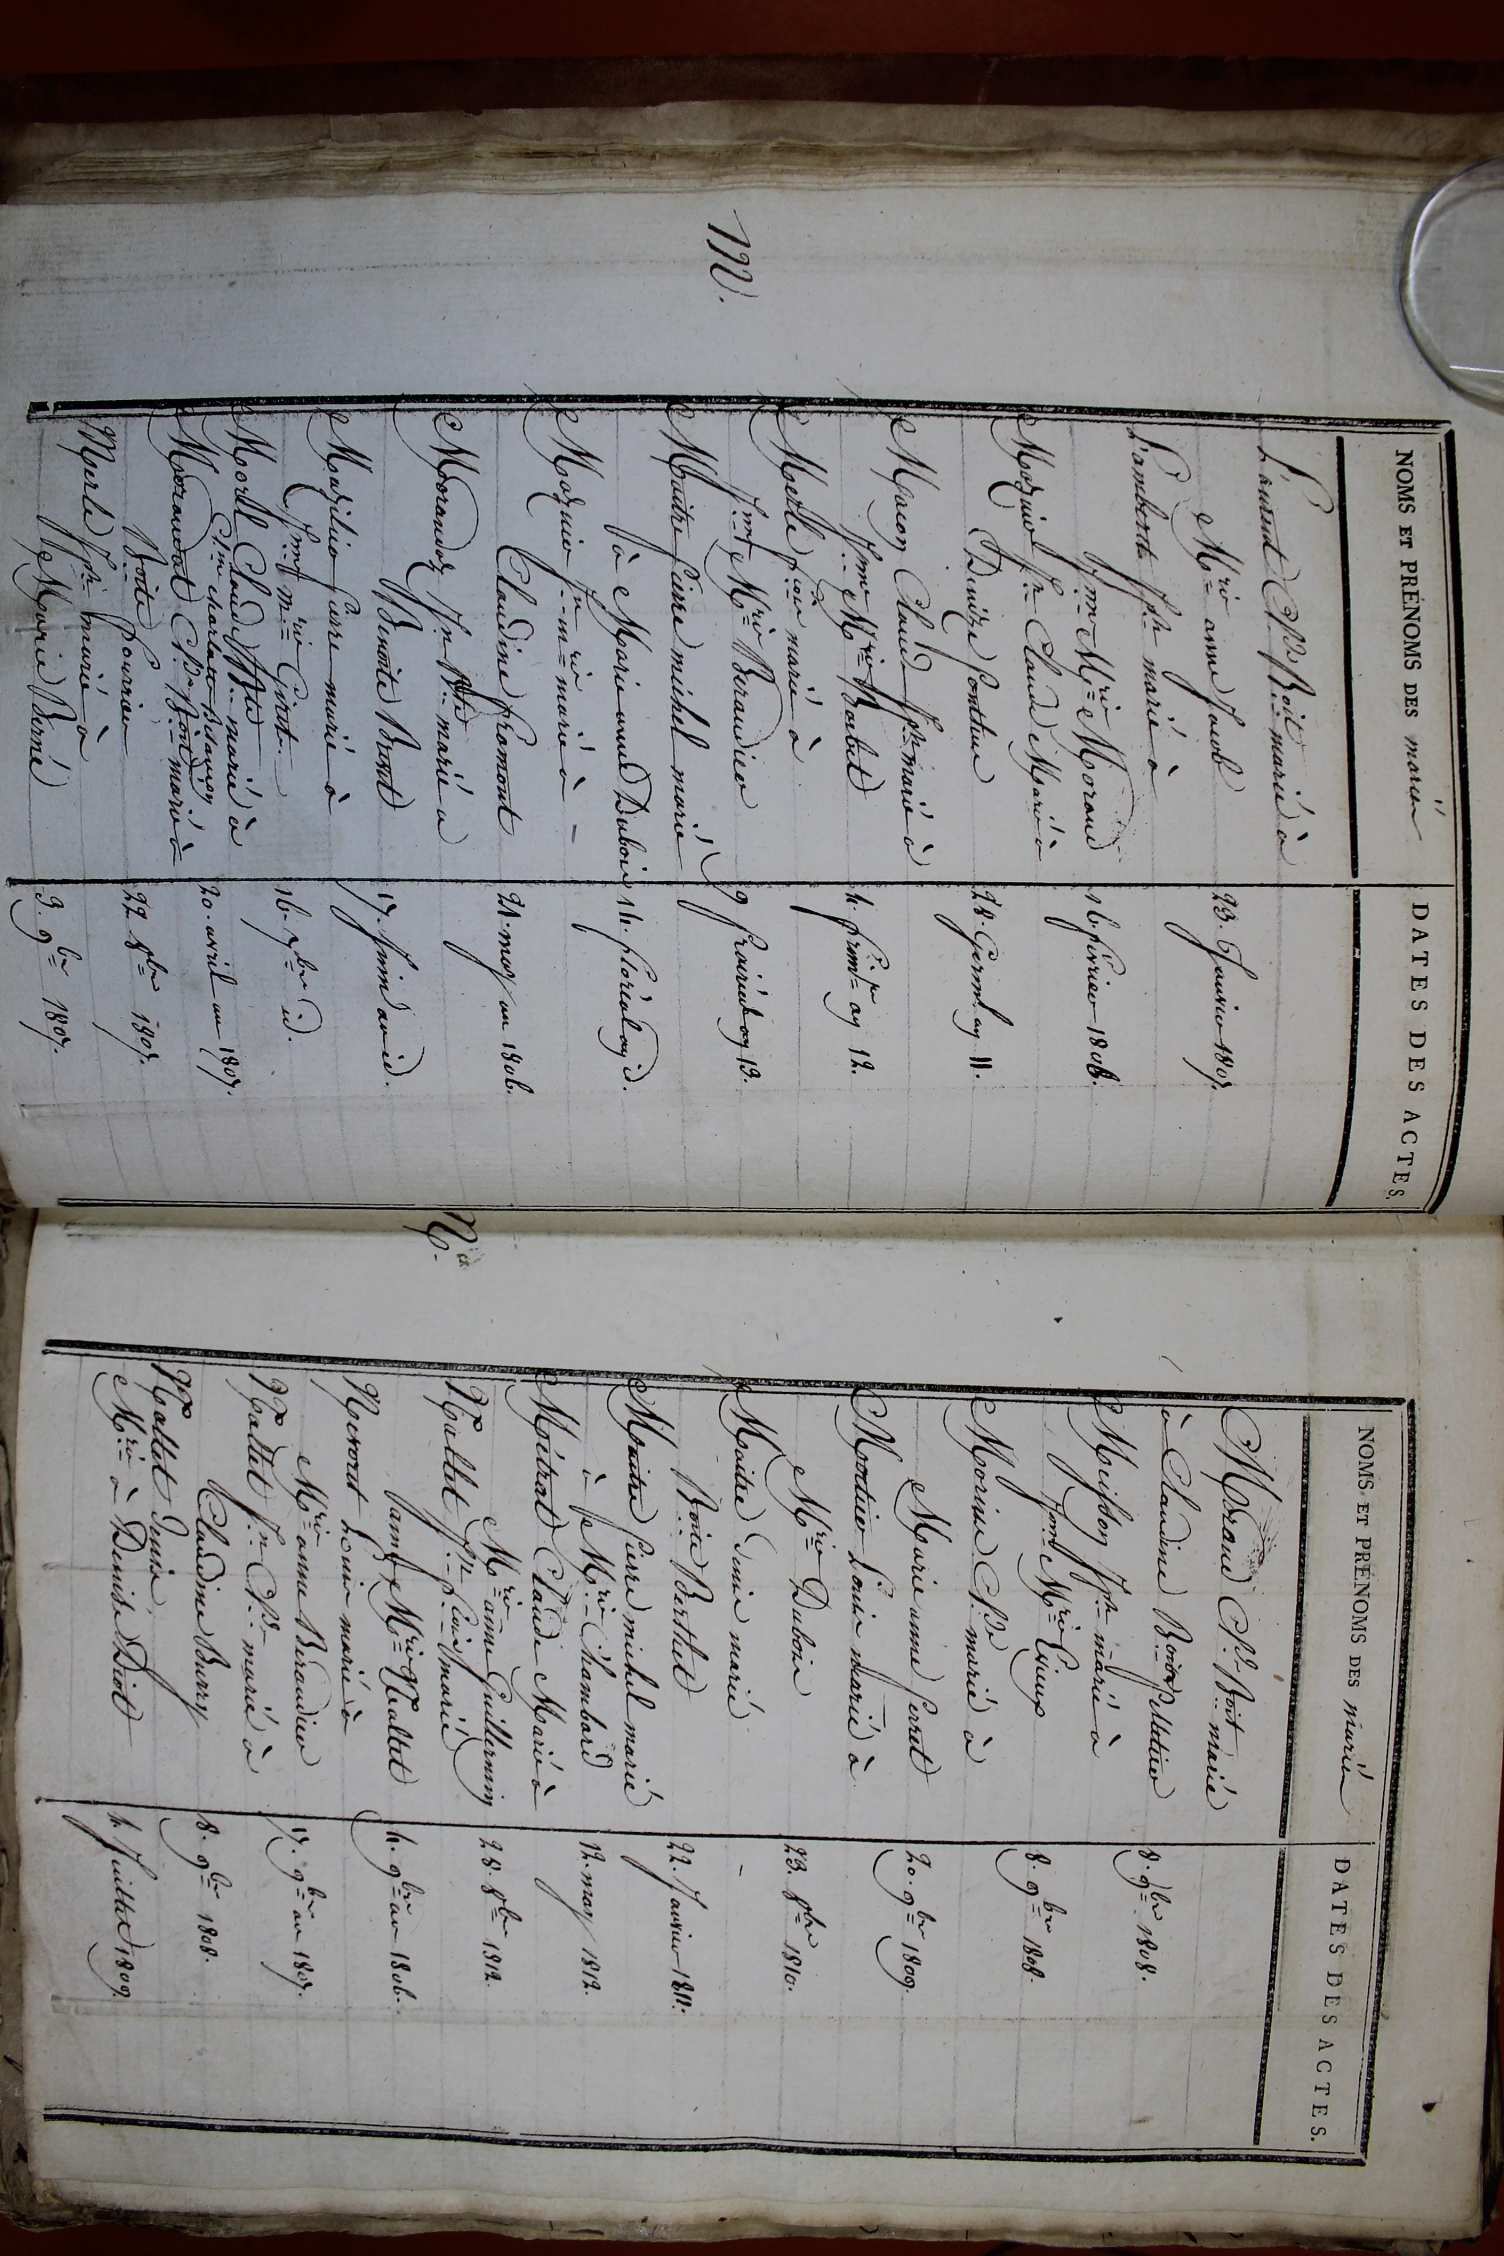 NOMS ET PRÉNOMS DES mariés
DATES DES ACTES.
Laurent Cl. Bt marié à
Mrie anne Jacob
23. Janvier 1807.
Lambert Jph marié à
Jne Mrie Moraud
16. février 1808.
M.
Mazuir Jn Claude Marié à
Denize Ponthus
28. Germl an 11.
Macon Claude Jph marié à
Jnne Mrie Barbet
4. frimre an 12.
Merle marié à
Jnne Mrie Beraudier
9 prairial an 13.
Maitre Pierre michel marié
à Marie anne Dubois
14. floréal an id.
Mazuir Jn m rie marié à
Claudine fromont
21. may an 1806.
Morandaz Jn Bte marié a
Benoite Benet
17. Juin an id.
Mazilier Pierre marié à
Jnne mrie Girot
16. 7bre id.
Morel Claude marié à
Clne charlotte
20. avril an 1807.
marié à
Boite Perrier
22 8bre 1807.
Merle Jph marié à
Marie Berné
9. 9bre 1807.
NOMS ET PRÉNOMS DES mariés
DATES DES ACTES.
Moraud Cl. Bt marié
à Claudine Boite Pelletier
8. 9bre 1808.
Meison Jph marié à
Jnne Mrie
8. 9bre 1808.
Morin Cl. marié à
Marie anne Perret
20. 9bre 1809.
Mortier Louis marié à
Mrie Dubois
23. 8bre 1810.
Maitre Denis marié
Boite Berthet
22. Janvier 1811.
Maitre Pierre michel marié
à Mrie Chambard
12. may 1812.
Métrat Claude Marié à
Mrie anne Guillermin
28. 8bre 1812.
N.
Nallet Jn Louis marié
Jamt Mrie Nallet
4. 9bre an 1806.
Nerout Louis marié à
Mrie anne Béraudier
17. 9bre an 1807.
Nallet Jn Cl. marié à
Claudine Burry
8. 9bre 1808.
Nallet Denis,
Mrié à Denise Diot
4 Juillet 1809.